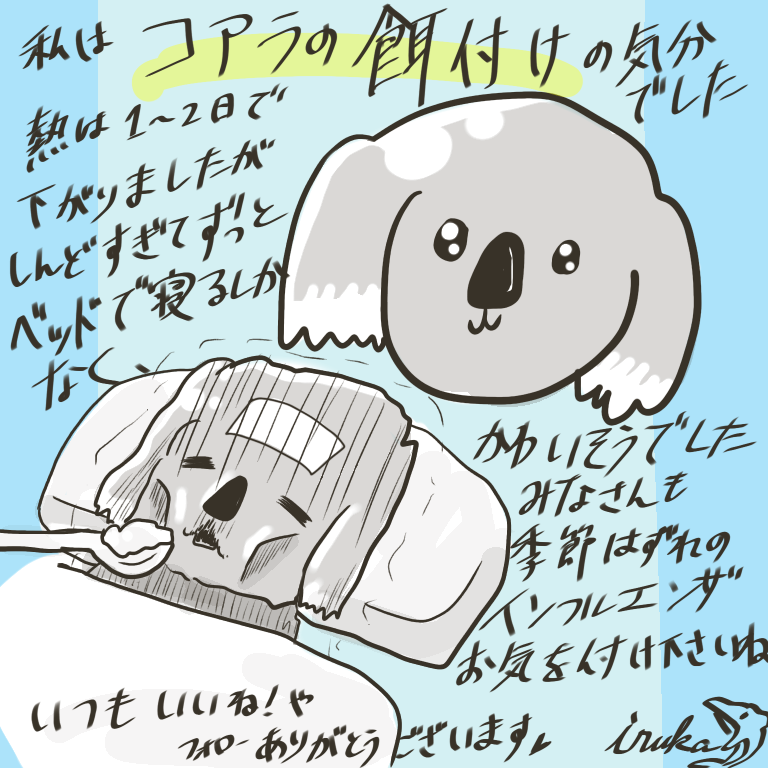 私は コアラの餌付け の気分
でした
熱は1〜2日で
下がりましたが
しんどすぎてずっと
ベッドで寝るしか
なく、
かわいそうでした
みなさんも
季節はずれの
インフルエンザ
お気を付け下さいね
いつも いいね!や
フォローありがとうございます
irukaツ